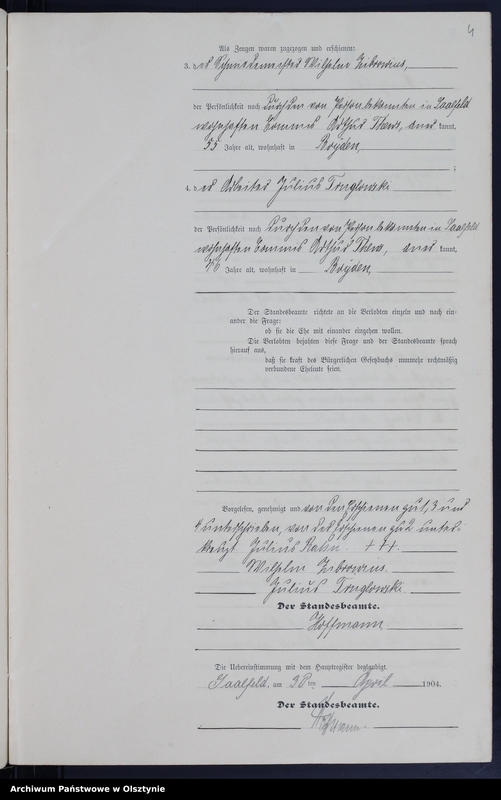 4
Als Zeugen waren zugezogen und erschienen:
3. der Schneidermeister Wilhelm Ziborovius,
der Persönlichkeit nach durch den von Person bekannten in Saalfeld
wohnhaften Commis Arthur Thews, aner kannt,
55 Jahre alt, wohnhaft in Boyden,
;
4. der Arbeiter Julius Truglowski
der Persönlichkeit nach durch den von Person bekannten in Saalfeld
wohnhaften Commis Arthur Thews, aner kannt,
46 Jahre alt, wohnhaft in Boyden,
Der Standesbeamte richtete an die Verlobten einzeln und nach ein-
ander die Frage:
ob sie die Ehe mit einander eingehen wollen.
Die Verlobten bejahten diese Frage und der Standesbeamte sprach
hierauf aus,
daß sie kraft des Bürgerlichen Gesetzbuchs nunmehr rechtmäßig
verbundene Eheleute seien.
Vorgelesen, genehmigt und von den Erschienenen zu 1, 3 und
4 unterschrieben, von der Erschienenen zu 2 unter-
kreuzt. Julius Rahn. +++.
Wilhelm Ziborovius.
Julius Truglowski.
Der Standesbeamte.
Hoffmann
Die Uebereinstimmung mit dem Hauptregister beglaubigt.
Saalfeld, am ten April 1904.
Der Standesbeamte.
Hoffmann.
Archiwum Państwowe w Olsztynie